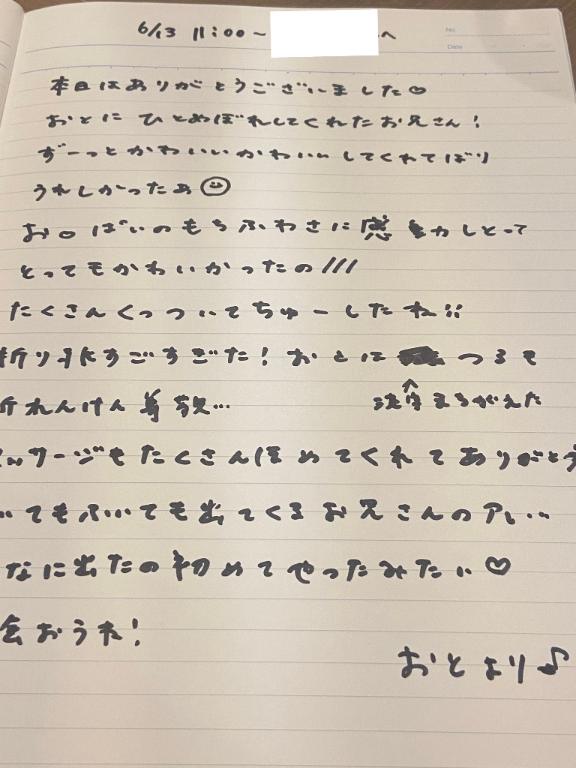 6/13 11:00～ へ
No.
Date
本日はありがとうございました♡
おとにひとめぼれしてくれたお兄さん!
ずーっとかわいいかわいいしてくれてばり
うれしかったぁ☺
お○ぱいのもちふわさに感動しとって
とってもかわいかったの///
たくさんくっついてちゅーしたね!!
折り方すごすぎた! おとには つるを
折れんけん 尊敬…
漢字まちがえた
マッサージもたくさんほめてくれてありがとう
いてもふいても出てくるお兄さんのアレ…
なに出たの初めてやったみたい♡
会おうね!
おとより♪